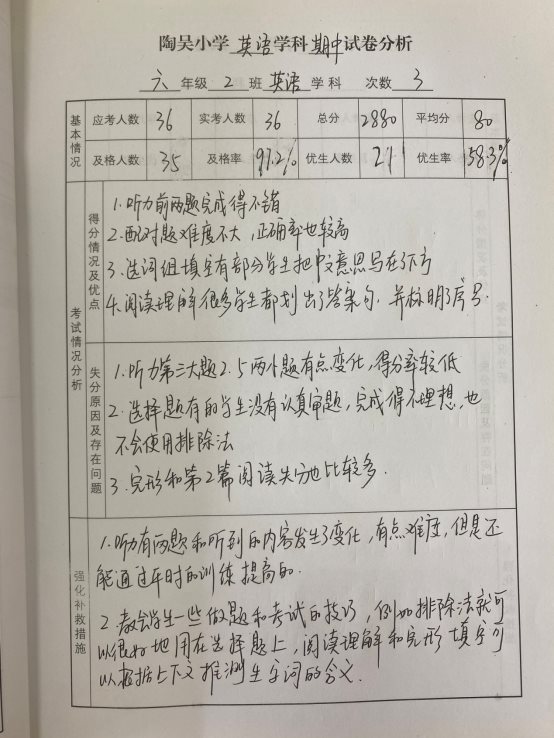 陶吴小学 英语 学科 期中 试卷分析
六 年级 2 班 英语 学科 次数 3
基本情况
应考人数 36 实考人数 36 总分 2880 平均分 80
及格人数 35 及格率 97.2% 优生人数 21 优生率 58.3%
考试情况分析
得分情况及优点
1.听力前两题完成得不错
2.配对题难度不大,正确率也较高
3.选词组填空有部分学生把中文意思写在了下方
4.阅读理解很多学生都划出了答案句,并标明了序号.
失分原因及存在问题
1.听力第三大题2.5两小题有点变化,得分率较低
2.选择题有的学生没有认真审题,完成得不理想,也
不会使用排除法
3.完形和第2篇阅读失分也比较多.
强化补救措施
1.听力有两题和听到的内容发生了变化,有点难度,但是还
能通过平时的训练提高的.
2.教会学生一些做题和考试的技巧,例如排除法就可
以很好地用在选择题上,阅读理解和完形填空可
以根据上下文推测生字词的含义.